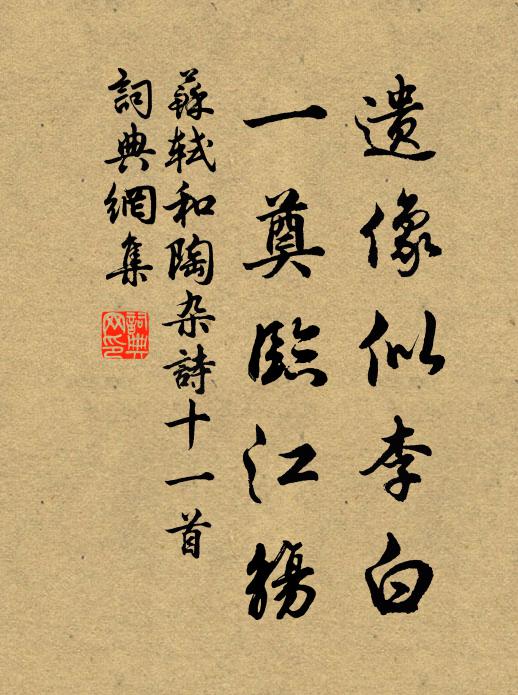 遺像似李白
一奠臨江觴
蘇軾和陶杂詩十一首
詞典網集
詞典
网印